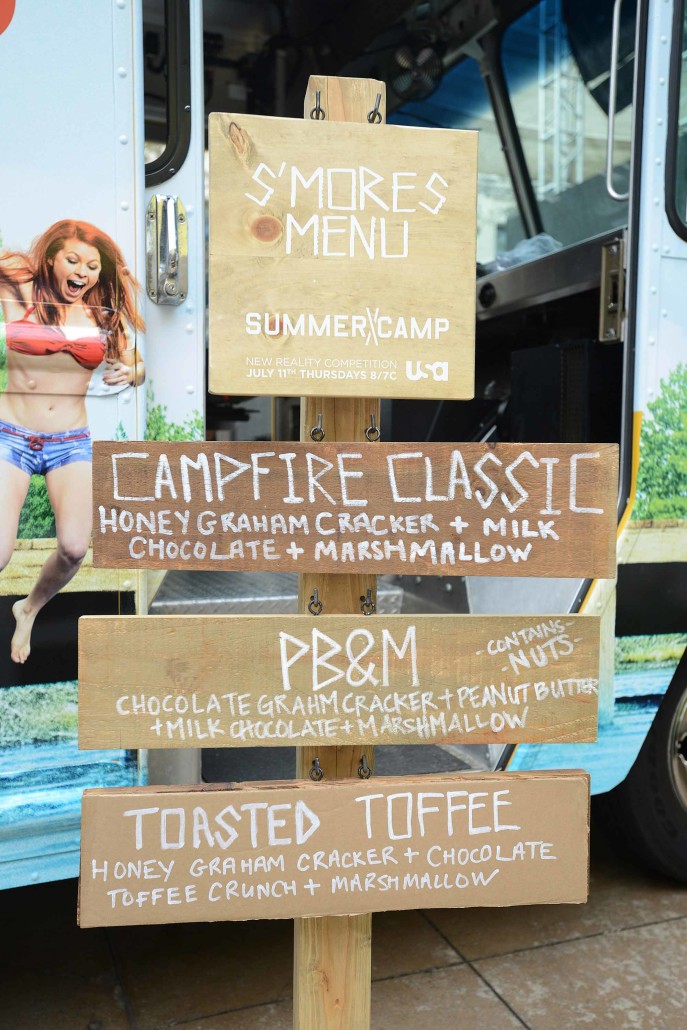 S'MORES
MENU
SUMMER CAMP
NEW REALITY COMPETITION
JULY 11TH THURSDAYS 8/7C USA
CAMPFIRE CLASSIC
HONEY GRAHAM CRACKER + MILK
CHOCOLATE + MARSHMALLOW
PB&M
-CONTAINS-
-NUTS-
CHOCOLATE GRAHM CRACKER + PEANUT BUTTER
+ MILK CHOCOLATE + MARSHMALLOW
TOASTED TOFFEE
HONEY GRAHAM CRACKER + CHOCOLATE
TOFFEE CRUNCH + MARSHMALLOW